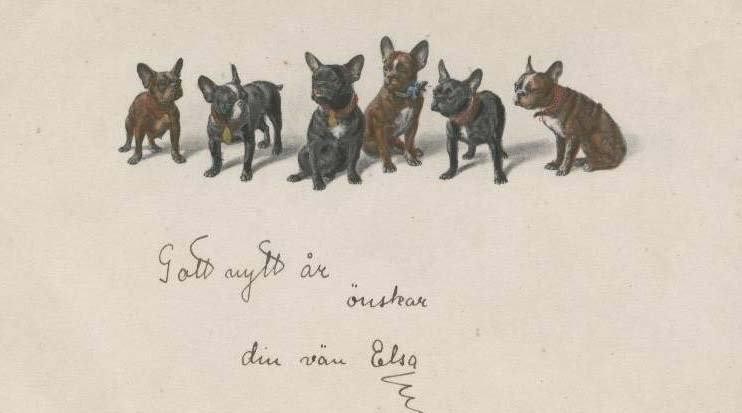 Gott nytt år
önskar
din vän Elsa